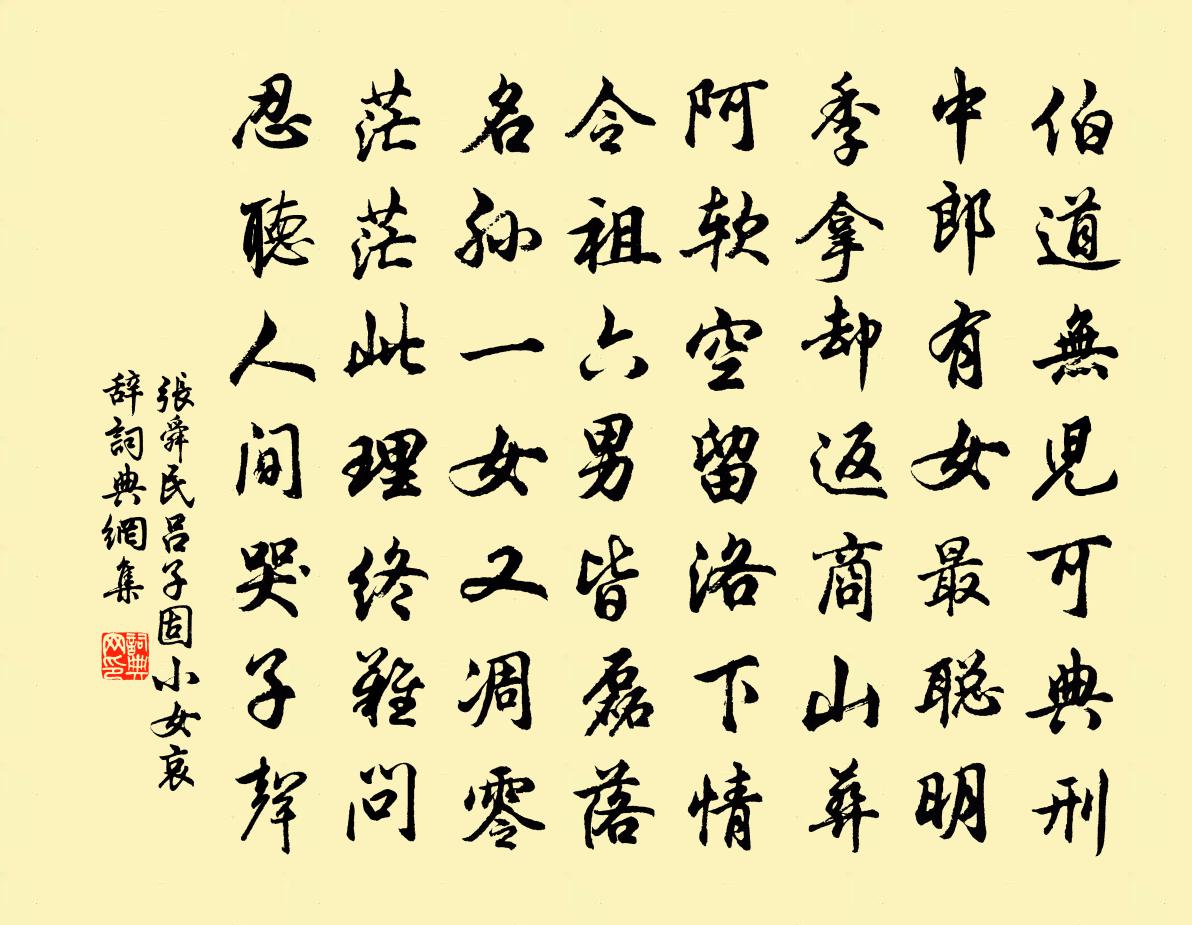 伯道無兒可典刑
中郎有女最聪明
季拿却返商山葬
阿软空留洛下情
令祖六男皆磊落
名孙一女又凋零
茫茫此理终難问
忍聽人间哭子聲
張舜民吕子固小女哀
辞詞典網集
詞典网印